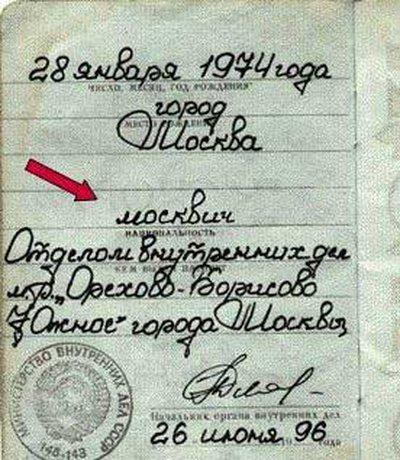 28 января 1974 года
ЧИСЛО, МЕСЯЦ, ГОД РОЖДЕНИЯ
город
МЕСТО РОЖДЕНИЯ
Москва
москвич
НАЦИОНАЛЬНОСТЬ
Отделом внутренних дел
КЕМ ВЫДАН
м.р. „Орехово-Борисово
Южное" города Москвы
МИНИСТЕРСТВО ВНУТРЕННИХ ДЕЛ СССР
148-143
Начальник органа внутренних дел
26 июня 96